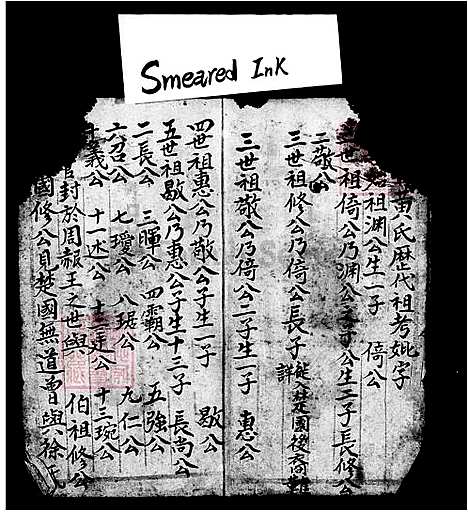 Smeared Ink
黄氏歷代祖考妣字
祖淵公生一子 倚公
世祖倚公乃淵公之子公生二子長修公
二敬公
三世祖修公乃倚公長子徙入楚國後裔難詳
三世祖敬公乃倚公二子生一子 惠公
四世祖惠公乃敬公子生一子 歇公
五世祖歇公乃惠公子生十三子 長尚公
二長公 三暉公 四霸公 五強公
六召公 七瓊公 八琚公 九仁公
十義公 十一述公 十二廷公 十三琬公
官封於周赧王之世與 伯祖修公
國修公見楚國無道曾與徐氏